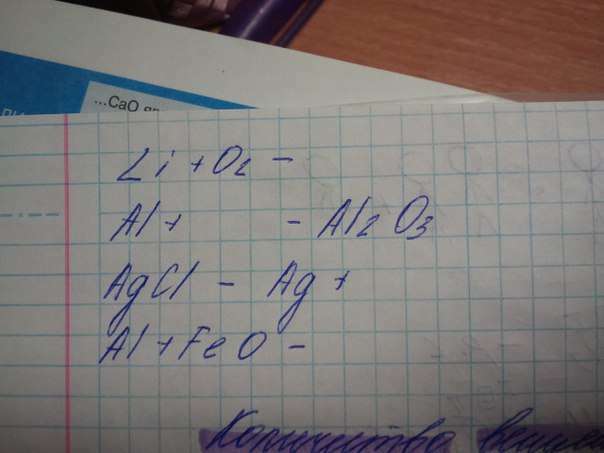 ...CaO
Li + O₂ –
Al + – Al₂O₃
AgCl – Ag +
Al + FeO –
Количество